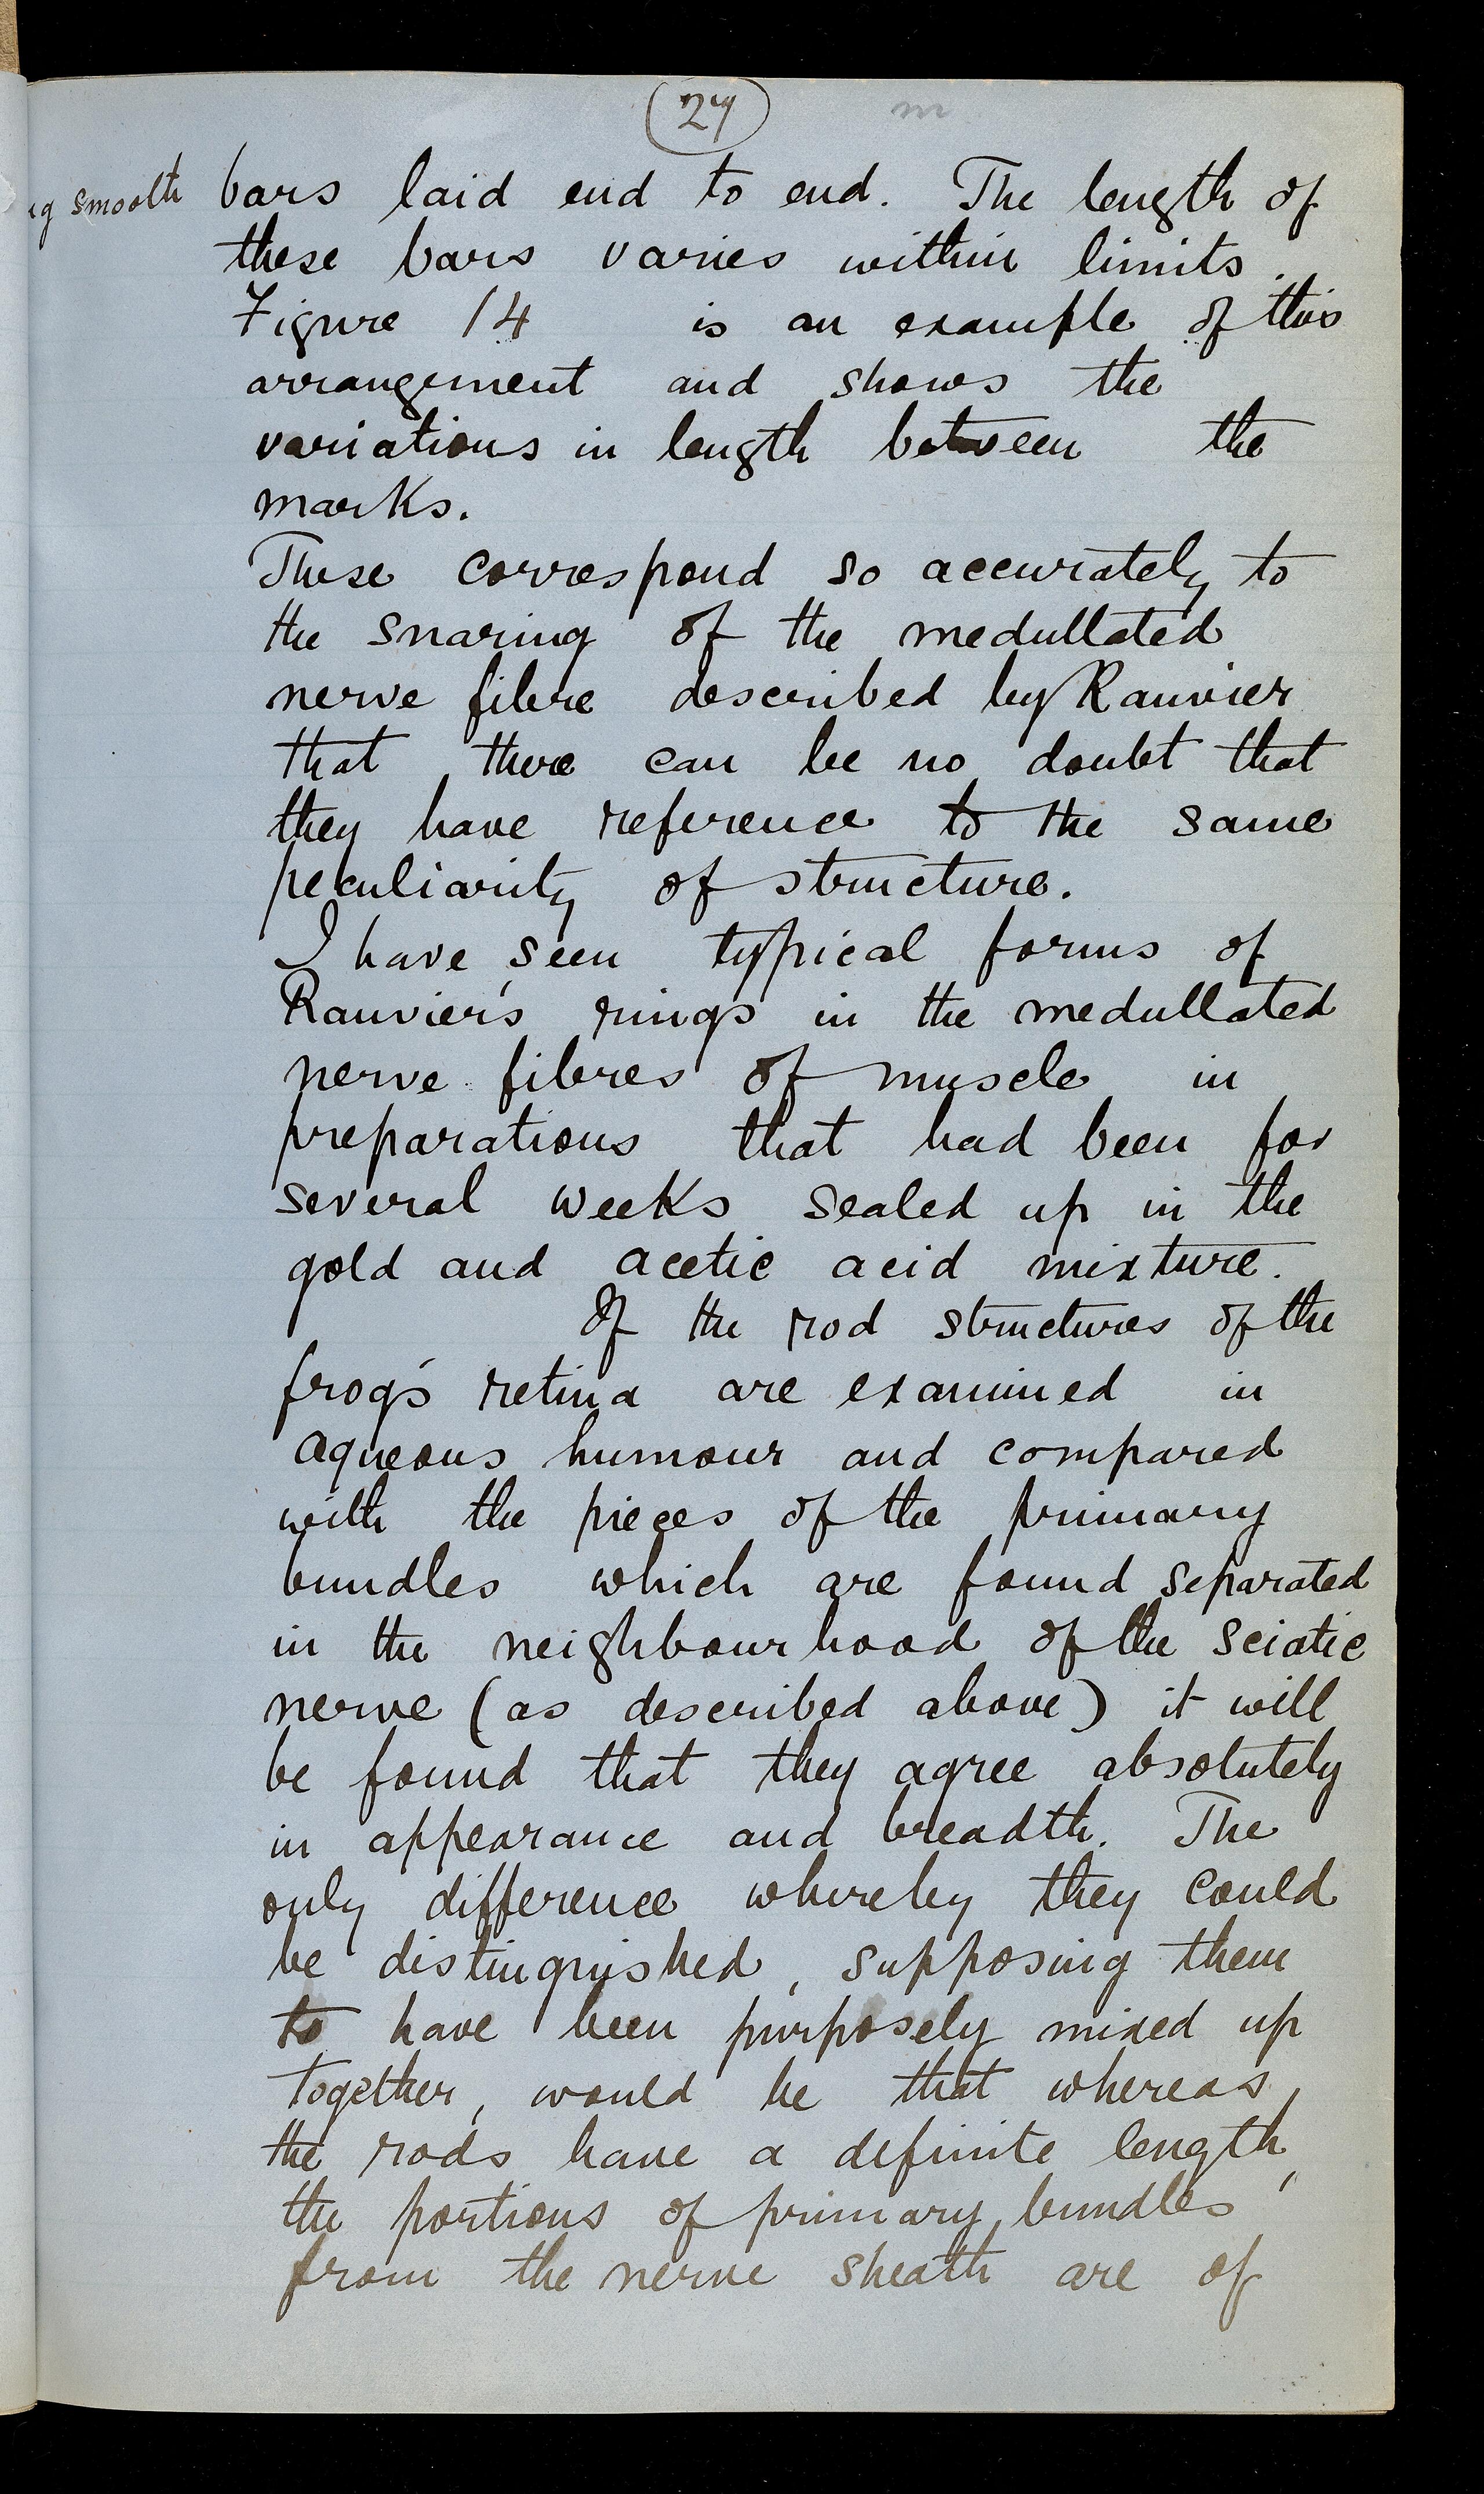 27
smooth bars laid end to end. The length of
these bars varies within limits.
Figure 14 is an example of this
arrangement and shows the
variations in length between the
marks.
These correspond so accurately to
the snaring of the medullated
nerve fibre described by Ranvier
that there can be no doubt that
they have reference to the same
peculiarity of structure.
I have seen typical forms of
Ranvier's rings in the medullated
nerve fibres of muscle in
preparations that had been for
several weeks sealed up in the
gold and acetic acid mixture.
If the rod structures of the
frog's retina are examined in
aqueous humour and compared
with the pieces of the primary
bundles which are found separated
in the neighbourhood of the sciatic
nerve (as described above) it will
be found that they agree absolutely
in appearance and breadth. The
only difference whereby they could
be distinguished, supposing them
to have been purposely mixed up
together, would be that whereas,
the rods have a definite length,
the portions of primary bundles
from the nerve sheath are of